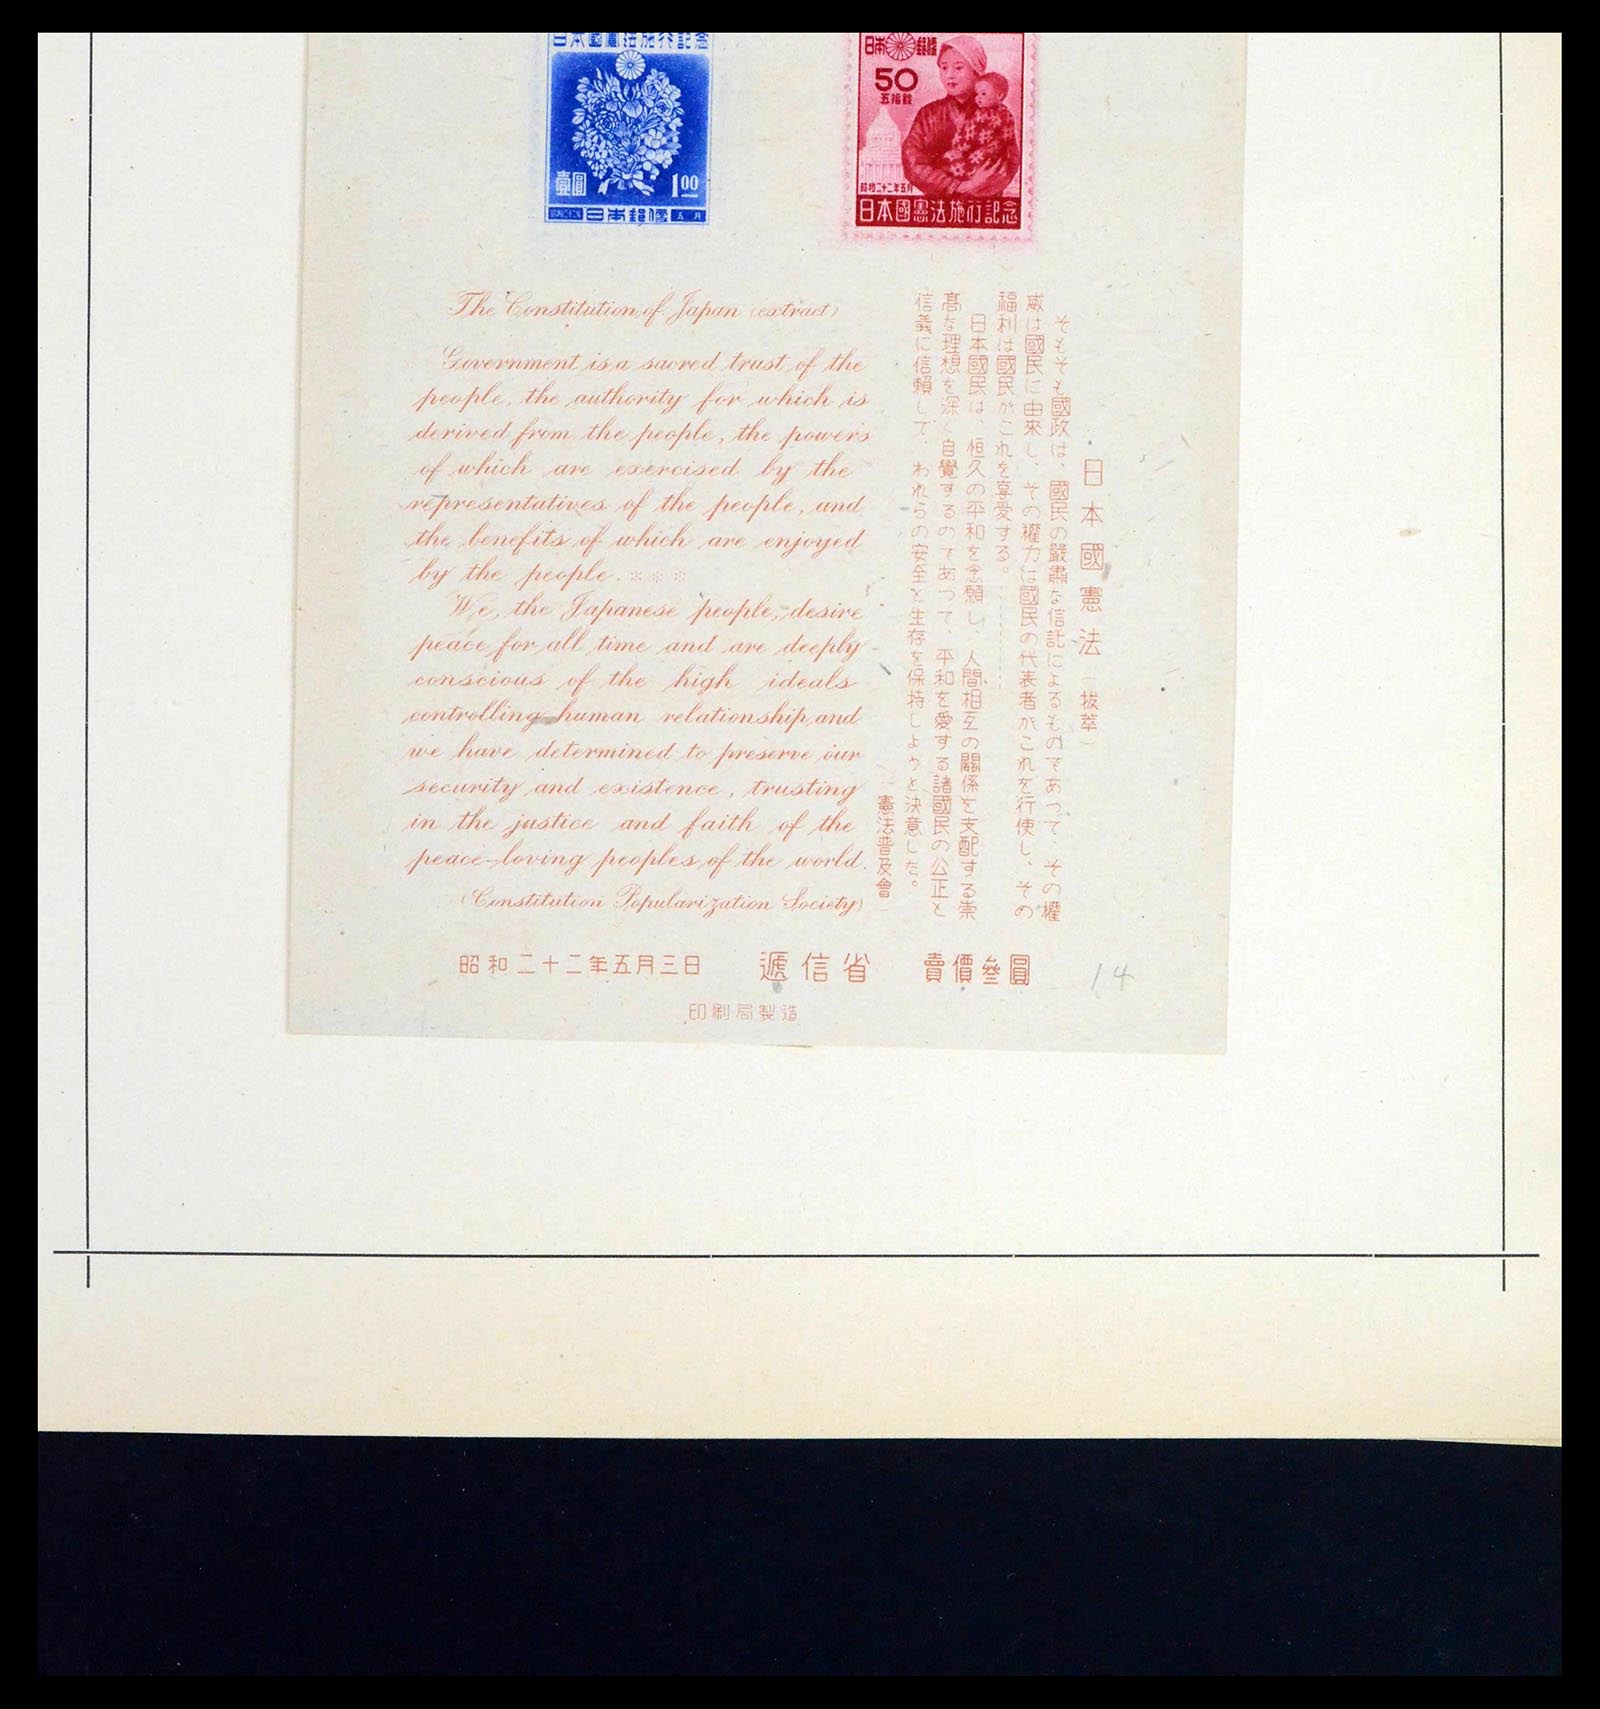 日本國憲法施行記念
壹圓
1.00
昭和二十二年 日本郵便 五月
日本郵便
50
五拾錢
昭和二十二年五月
日本國憲法施行記念
The Constitution of Japan (extract)
Government is a sacred trust of the
people, the authority for which is
derived from the people, the powers
of which are exercised by the
representatives of the people, and
the benefits of which are enjoyed
by the people. ※ ※ ※
We, the Japanese people, desire
peace for all time and are deeply
conscious of the high ideals
controlling human relationship and
we have determined to preserve our
security and existence, trusting
in the justice and faith of the
peace-loving peoples of the world.
(Constitution Popularization Society)
日本國憲法（拔萃）
そもそも國政は、國民の嚴肅な信託によるものであつて、その權
威は國民に由來し、その權力は國民の代表者がこれを行使し、その
福利は國民がこれを享受する。………
日本國民は、恒久の平和を念願し、人間相互の關係を支配する崇
高な理想を深く自覺するのであつて、平和を愛する諸國民の公正と
信義に信賴して、われらの安全と生存を保持しようと決意した。
（憲法普及會）
昭和二十二年五月三日 遞信省 賣價參圓
14
印刷局製造